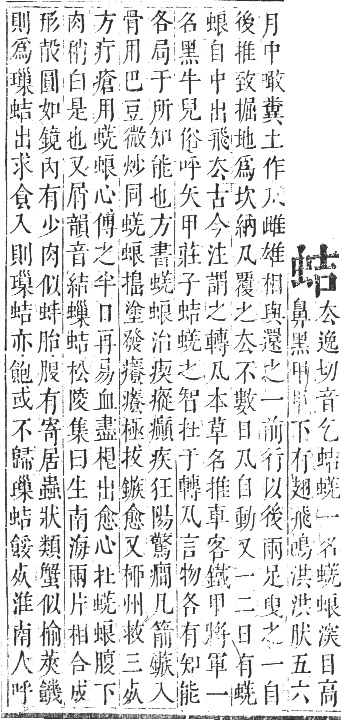 蛣
去逸切音乞蛣蜣一名蜣蜋深目高
鼻黑甲甲下有翅飛鳴洪洪狀五六
月中噉糞土作丸雌雄相與還之一前行以後兩足曳之一自
後推致掘地爲坎納丸覆之去不數日丸自動又一二日有蜣
蜋自中出飛去古今注謂之轉丸本草名推車客鐵甲將軍一
名黑牛兒俗呼矢甲莊子蛣蜣之智在于轉丸言物各有知能
各局于所知能也方書蜣蜋治瘈瘲癲疾狂陽驚癎凡箭鏃入
骨用巴豆微炒同蜣蜋搗塗發癢癢極拔鏃愈又柳州救三㱙
方疔瘡用蜣蜋心傅之半日再易血盡根出愈心在蜣蜋腹下
肉稍白是也又屑韻音結蟔蛣松陵集曰生南海兩片相合成
形殻圓如鏡內有少肉似蚌胎腹有寄居蟲狀類蟹似楡莢饑
則爲璅蛣出求食入則璅蛣亦飽或不歸璅蛣餒㱙淮南人呼